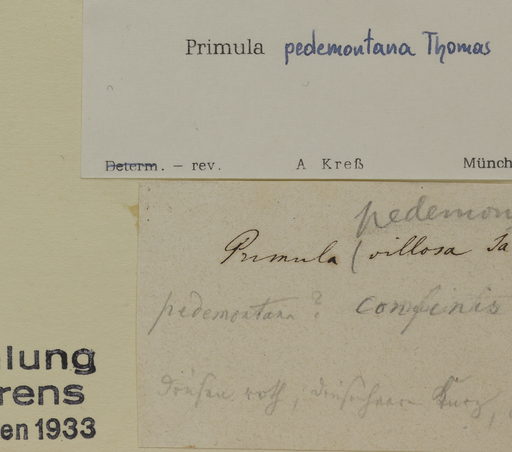 Primula pedemontana Thomas
Determ. – rev. A Kreß Münch
pedemon
Primula (villosa Ja
pedemontana? confinis
Drüsen roth, Drüsenhaare kurz,
lung
rens
en 1933